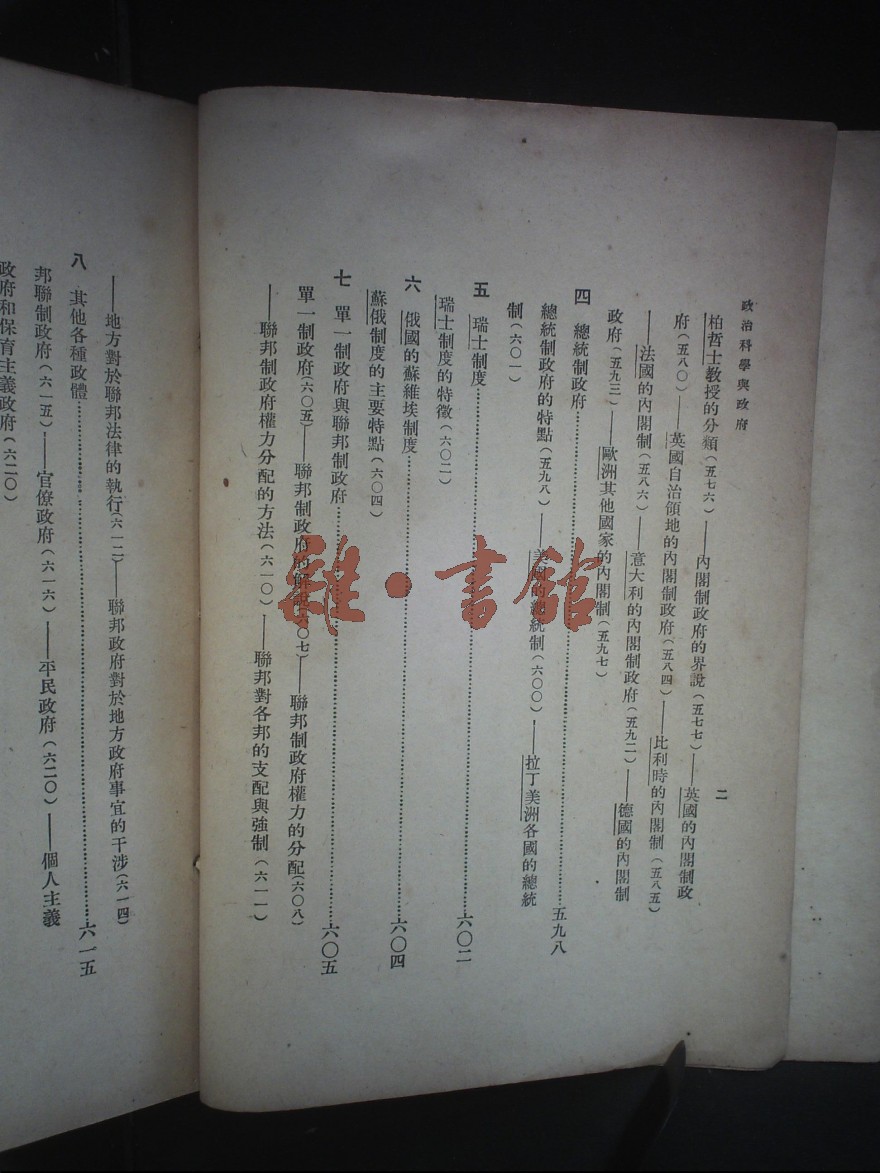 政治科學與政府
二
柏哲士教授的分類(五七六)——內閣制政府的界說(五七七)——英國的內閣制政
府(五八〇)——英國自治領地的內閣制政府(五八四)——比利時的內閣制(五八五)
——法國的內閣制(五八六)——意大利的內閣制政府(五九二)——德國的內閣制
政府(五九三)——歐洲其他國家的內閣制(五九七)
四 總統制政府……五九八
總統制政府的特點(五九八)——美國的總統制(六〇〇)——拉丁美洲各國的總統
制(六〇一)
五 瑞士制度……六〇二
瑞士制度的特徵(六〇二)
六 俄國的蘇維埃制度……六〇四
蘇俄制度的主要特點(六〇四)
七 單一制政府與聯邦制政府……六〇五
單一制政府(六〇五)——聯邦制政府的解說(六〇七)——聯邦制政府權力的分配(六〇八)
——聯邦制政府權力分配的方法(六一〇)——聯邦對各邦的支配與強制(六一一)
——地方對於聯邦法律的執行(六一二)——聯邦政府對於地方政府事宜的干涉(六一四)
八 其他各種政體……六一五
邦聯制政府(六一五)——官僚政府(六一六)——平民政府(六二〇)——個人主義
政府和保育主義政府(六二〇)
雜·書館